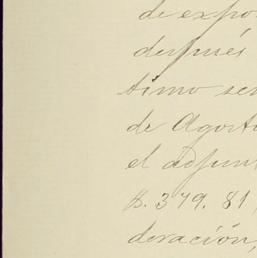 de expo
después
timo ser
de Agosto
el adjun
$. 379.81,
deración,